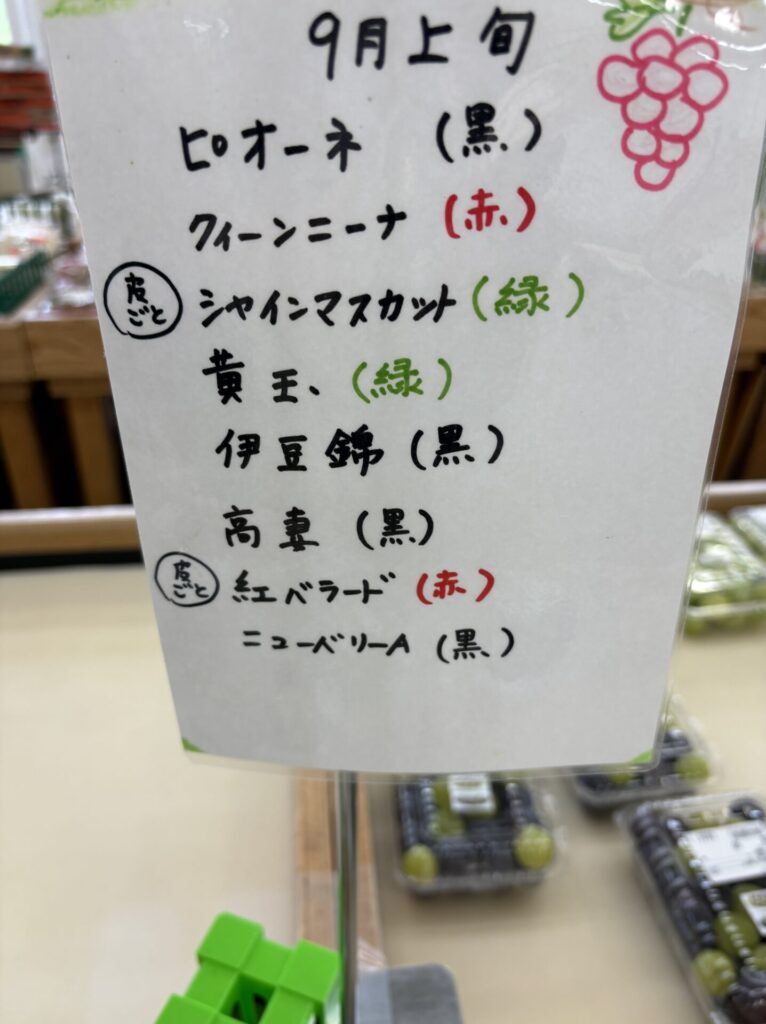 9月上旬
ピオーネ (黒)
クィーンニーナ (赤)
皮ごと シャインマスカット (緑)
黄玉、 (緑)
伊豆錦 (黒)
高妻 (黒)
皮ごと 紅バラード (赤)
ニューベリーA (黒)